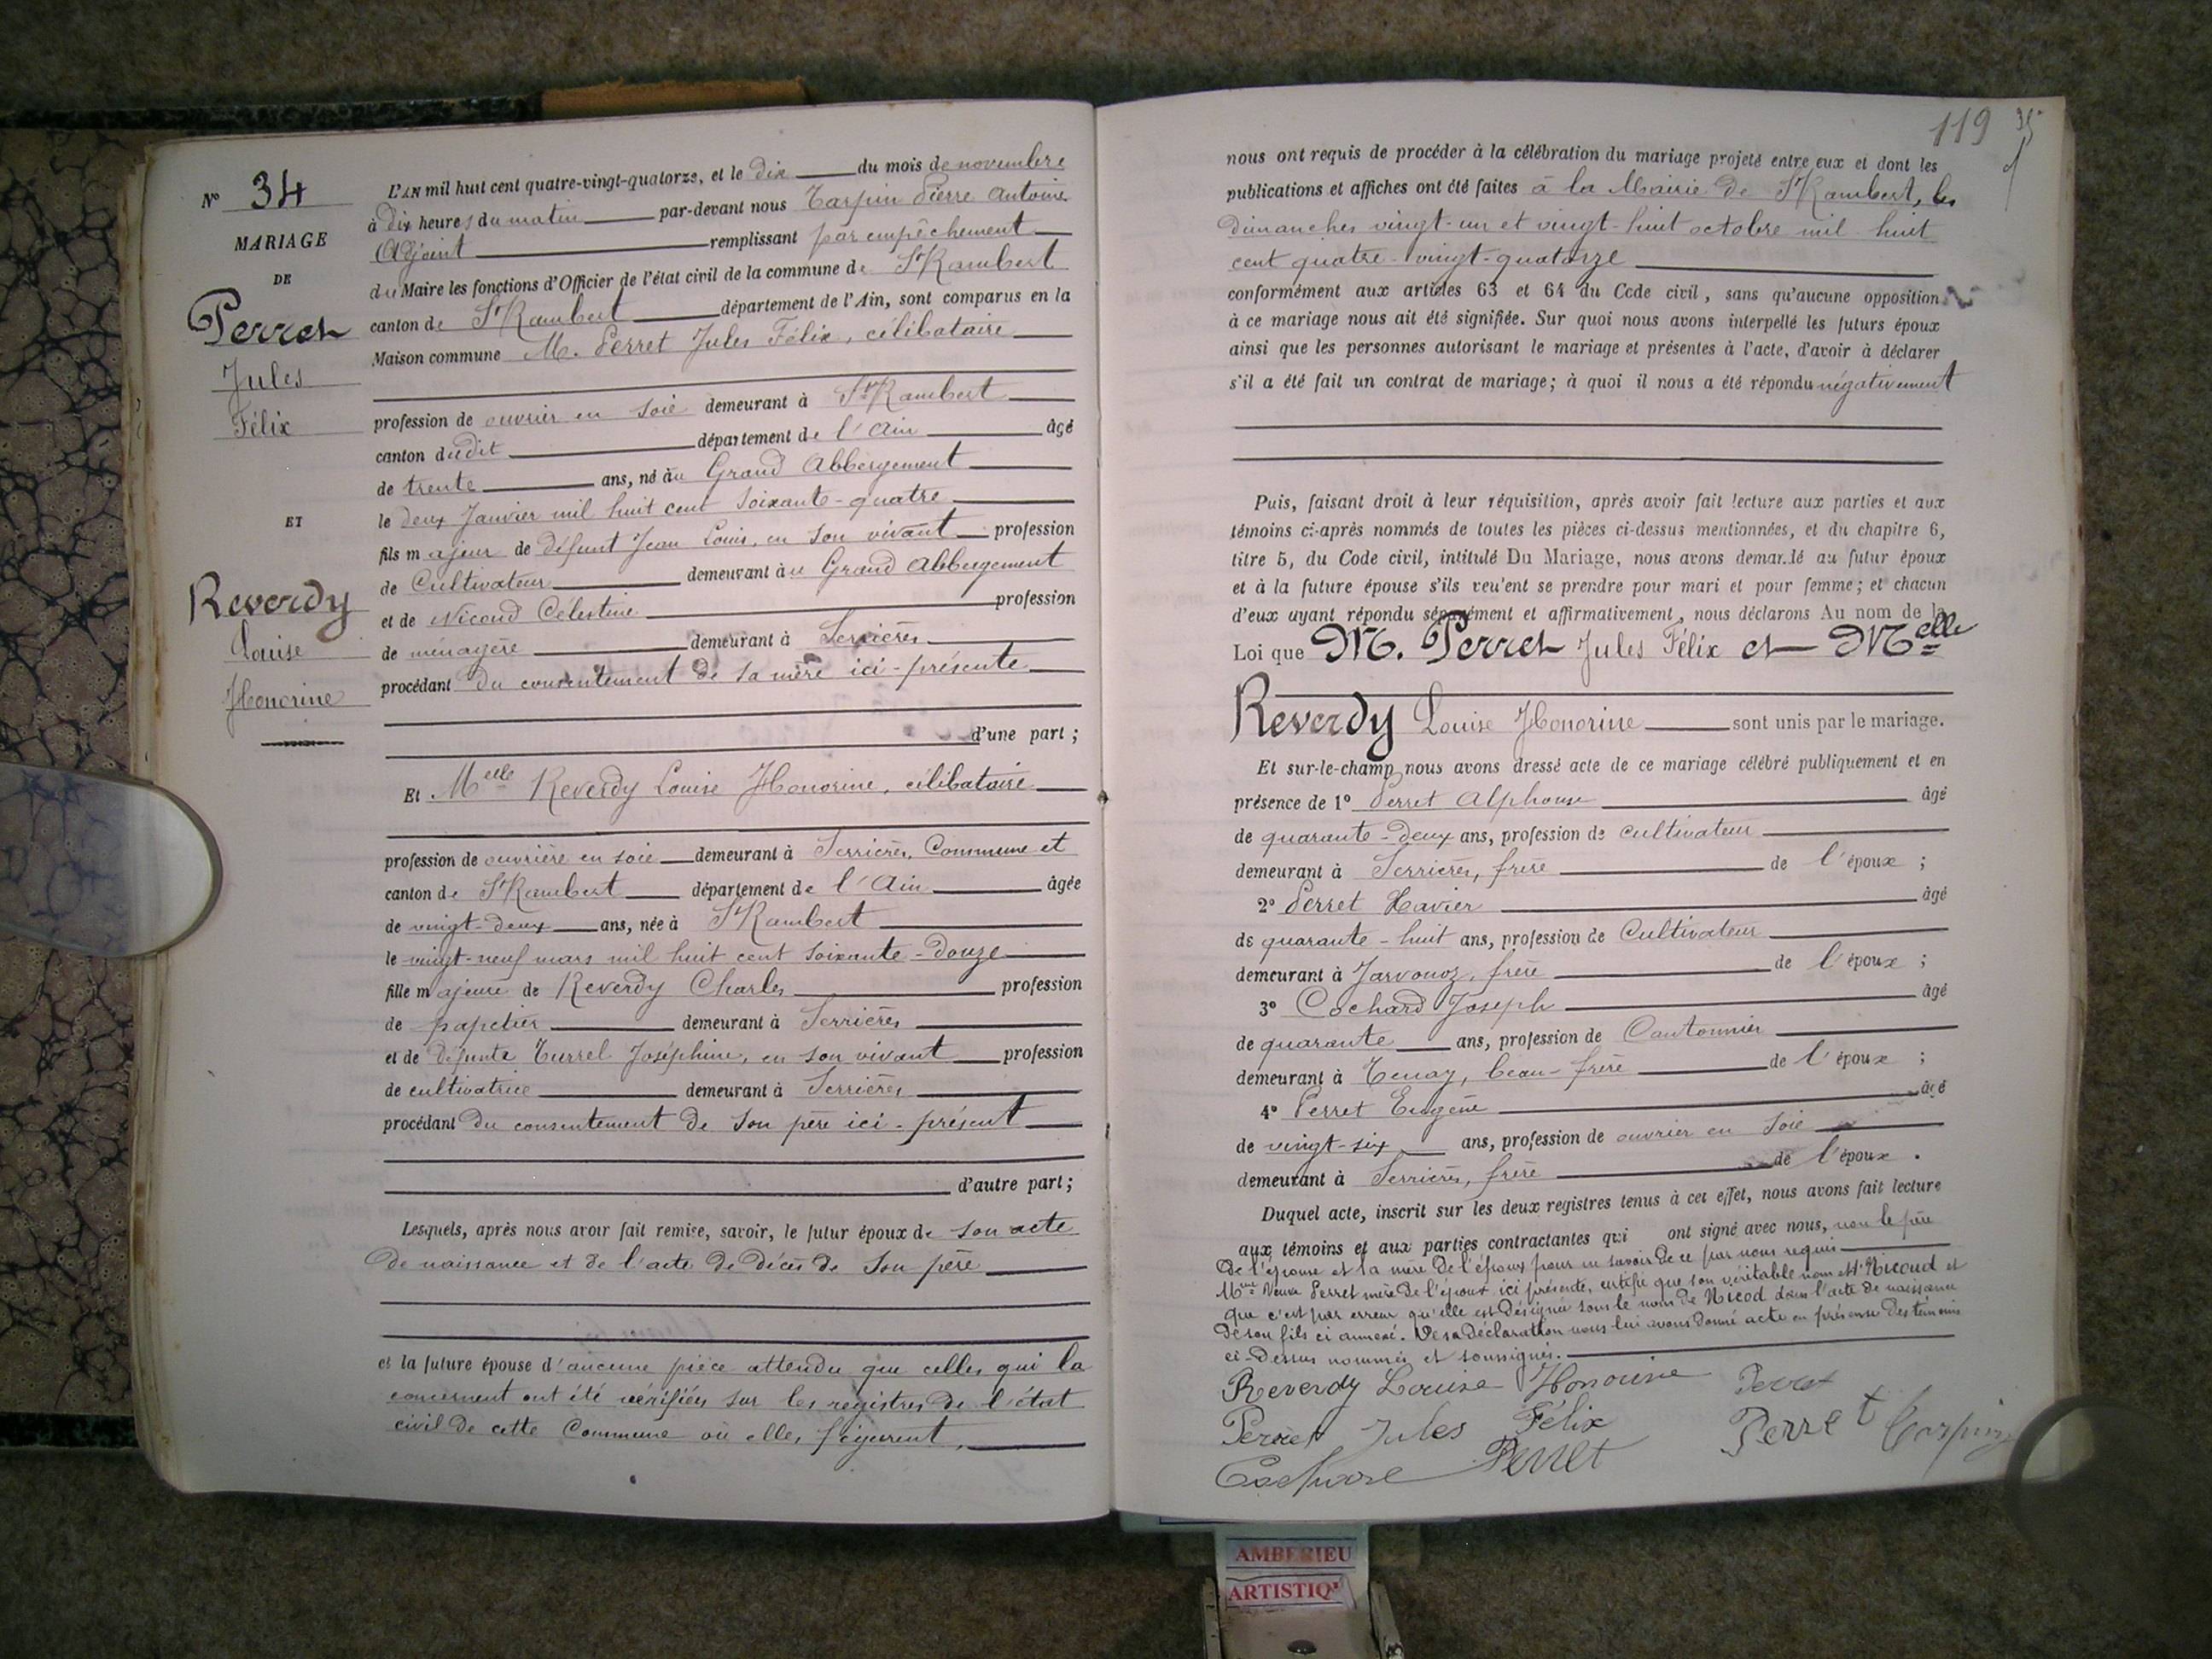 N° 34
MARIAGE
DE
Perret
Jules
Félix
ET
Reverdy
Louise
Honorine
L'AN mil huit cent quatre-vingt-quatorze, et le dix du mois de novembre
à dix heures du matin par-devant nous Tarpin Pierre Antoine
Adjoint remplissant par empêchement
du Maire les fonctions d'Officier de l'état civil de la commune de St Rambert
canton de St Rambert département de l'Ain, sont comparus en la
Maison commune M. Perret Jules Félix, célibataire
profession de ouvrier en soie demeurant à St Rambert
canton dudit département de l'Ain âgé
de trente ans, né au Grand Abbergement
le deux Janvier mil huit cent soixante-quatre
fils majeur de défunt Jean Louis, en son vivant profession
de Cultivateur demeurant au Grand Abbergement
et de Nicoud Célestine profession
de ménagère demeurant à Serrières
procédant du consentement de sa mère ici-présente
d'une part ;
Et Melle Reverdy Louise Honorine, célibataire
profession de ouvrière en soie demeurant à Serrières, Commune et
canton de St Rambert département de l'Ain âgée
de vingt-deux ans, née à St Rambert
le vingt-neuf mars mil huit cent soixante-douze
fille majeure de Reverdy Charles profession
de papetier demeurant à Serrières
et de défunte Turrel Joséphine, en son vivant profession
de cultivatrice demeurant à Serrières
procédant du consentement de son père ici-présent
d'autre part ;
Lesquels, après nous avoir fait remise, savoir, le futur époux de son acte
de naissance et de l'acte de décès de son père
et la future épouse d'aucune pièce attendu que celles qui la
concernent ont été vérifiées sur les registres de l'état
civil de cette Commune où elles figurent,
119 35
nous ont requis de procéder à la célébration du mariage projeté entre eux et dont les
publications et affiches ont été faites à la Mairie de St Rambert, les
dimanches vingt-un et vingt-huit octobre mil huit
cent quatre-vingt-quatorze
conformément aux articles 63 et 64 du Code civil, sans qu'aucune opposition
à ce mariage nous ait été signifiée. Sur quoi nous avons interpellé les futurs époux
ainsi que les personnes autorisant le mariage et présentes à l'acte, d'avoir à déclarer
s'il a été fait un contrat de mariage; à quoi il nous a été répondu négativement
Puis, faisant droit à leur réquisition, après avoir fait lecture aux parties et aux
témoins ci-après nommés de toutes les pièces ci-dessus mentionnées, et du chapitre 6,
titre 5, du Code civil, intitulé Du Mariage, nous avons demandé au futur époux
et à la future épouse s'ils veulent se prendre pour mari et pour femme; et chacun
d'eux ayant répondu séparément et affirmativement, nous déclarons Au nom de la
Loi que M. Perret Jules Félix et Melle
Reverdy Louise Honorine sont unis par le mariage.
Et sur-le-champ nous avons dressé acte de ce mariage célébré publiquement et en
présence de 1° Perret Alphonse âgé
de quarante-deux ans, profession de cultivateur
demeurant à Serrières, frère de l'époux ;
2° Perret Xavier âgé
de quarante-huit ans, profession de Cultivateur
demeurant à Jarvonoz, frère de l'époux ;
3° Cochard Joseph âgé
de quarante ans, profession de Cantonnier
demeurant à Tenay, beau-frère de l'époux ;
4° Perret Eugène âgé
de vingt-six ans, profession de ouvrier en soie
demeurant à Serrières, frère de l'époux.
Duquel acte, inscrit sur les deux registres tenus à cet effet, nous avons fait lecture
aux témoins et aux parties contractantes qui ont signé avec nous, non le père
de l'épouse et la mère de l'époux pour ne savoir de ce par nous requis
Mme Veuve Perret mère de l'époux ici présente, certifie que son véritable nom est Nicoud et
que c'est par erreur qu'elle est désignée sous le nom de Nicod dans l'acte de naissance
de son fils ci annexé. De sa déclaration nous lui avons donné acte en présence des témoins
ci-dessus nommés et soussignés.
Reverdy Louise Honorine Perret
Perret Jules Félix Perret Tarpin
Cochard Perret
AMBERIEU
ARTISTIQ